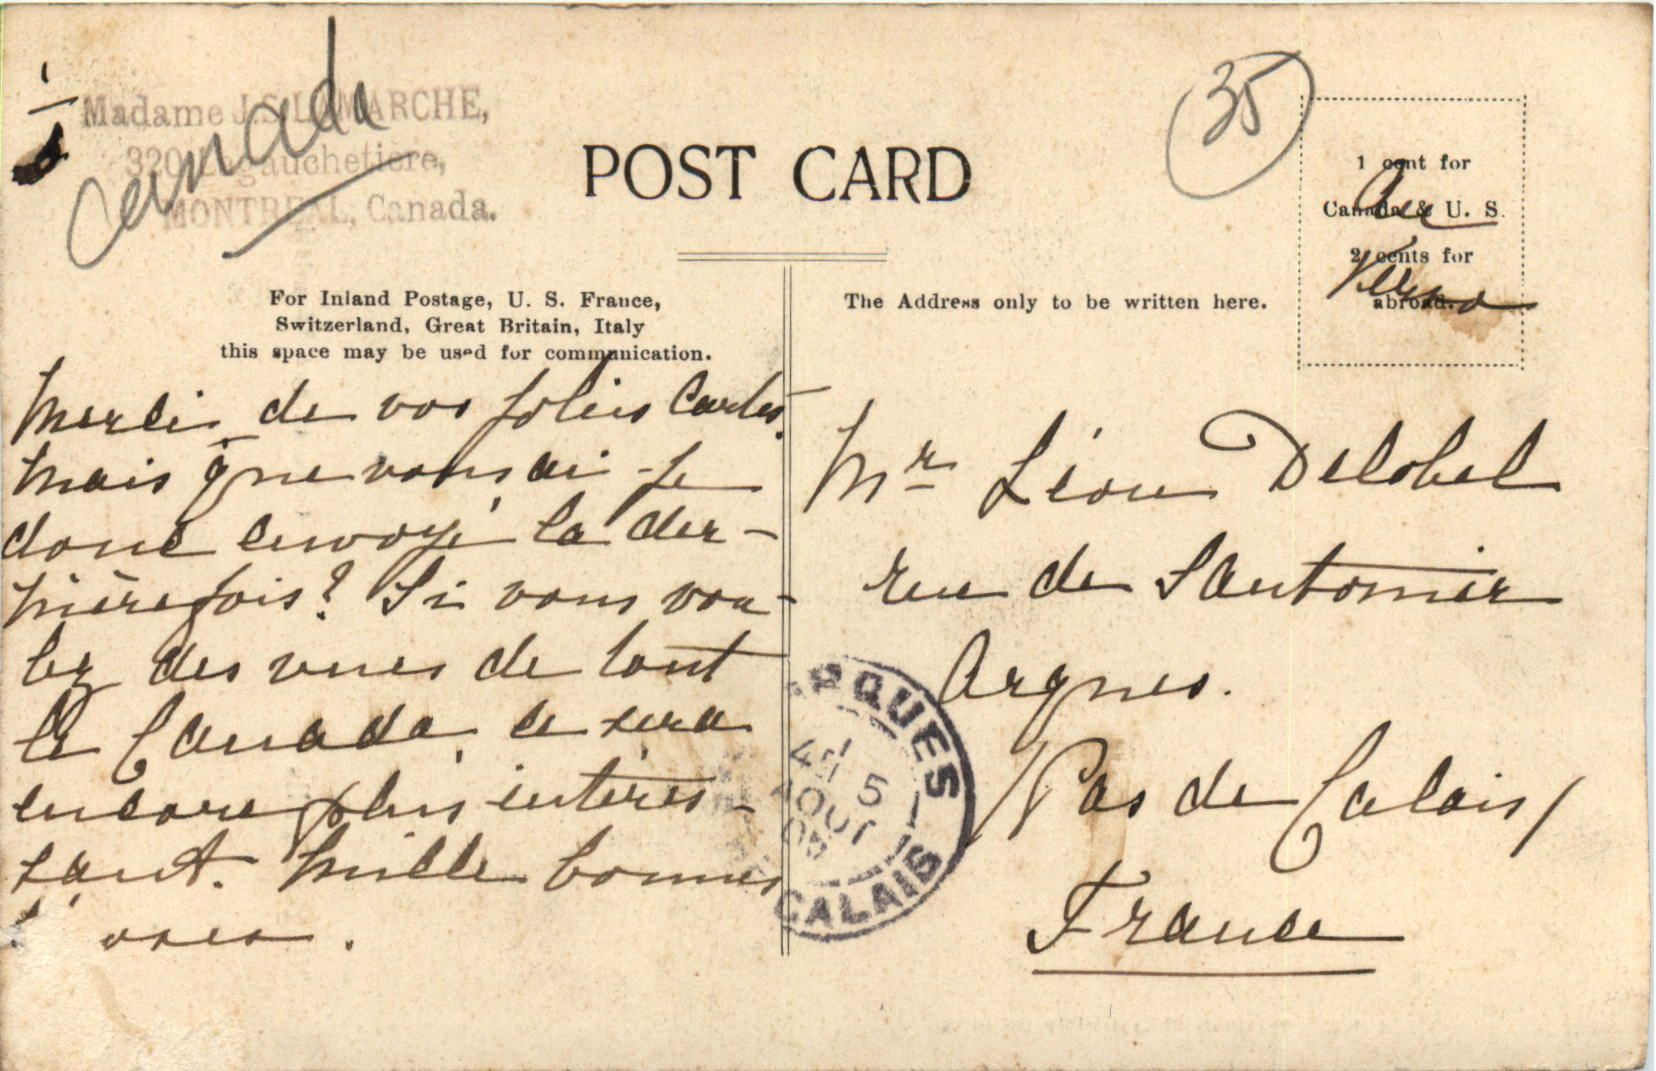 Madame J.S. LAMARCHE,
320 Lagauchetière,
MONTREAL, Canada.
Canada
POST CARD
35
1 cent for
Canada & U. S.
2 cents for
abroad.
Au
Verso
For Inland Postage, U. S. France,
Switzerland, Great Britain, Italy
this space may be used for communication.
The Address only to be written here.
Merci de vos jolies Cartes.
Mais que vous ai-je
donc envoyé la der-
nière fois? Si vous vou-
lez des vues de tout
le Canada, ce sera
encore plus intéres-
sant. Mille bonnes
Mr Léon Delobel
rue de Saintomer
Arques.
Pas de Calais
France
ARQUES
5
AOUT
CALAIS